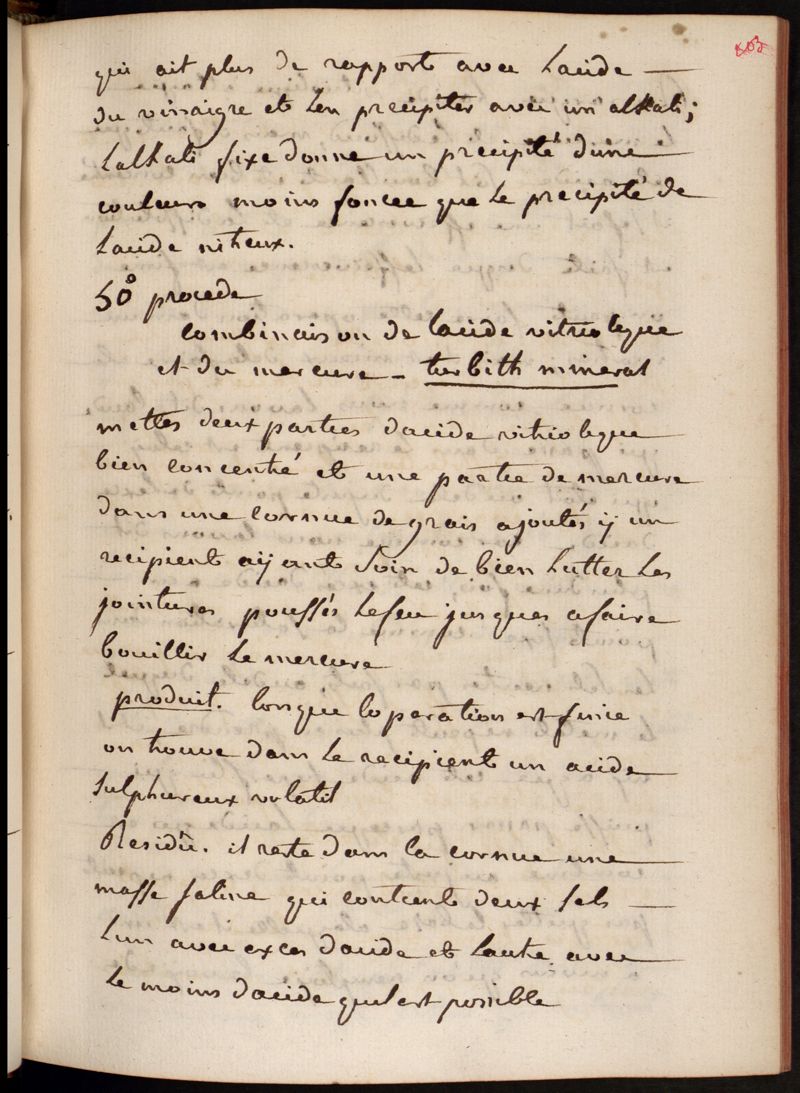 403
qui ait plus de rapport avec lacide —
du vinaigre et len precipiter avec un alkali;
lalkali fixe donne un precipité dune
couleurs moins foncee que le precipité de
lacide niteux.
50° procede
combinaison de lacide vitriolique
et du mercure - turbith mineral
mettes deux parties dacide vitriolique
bien concentré et une partie de mercure
dans une cornue de grais ajoutés ÿ un
recipient aÿant soin de bien lutter les
jointures poussés le feu jusques a faire
bouillir le mercure
produit. lorsque loperation est finie
on trouve dans le recipient un acide
sulphureux volatil
Residû. il reste dans la cornue une
masse saline qui contient deux sels —
lun avec exces dacide et lautre avec
le moins dacide quil est possible